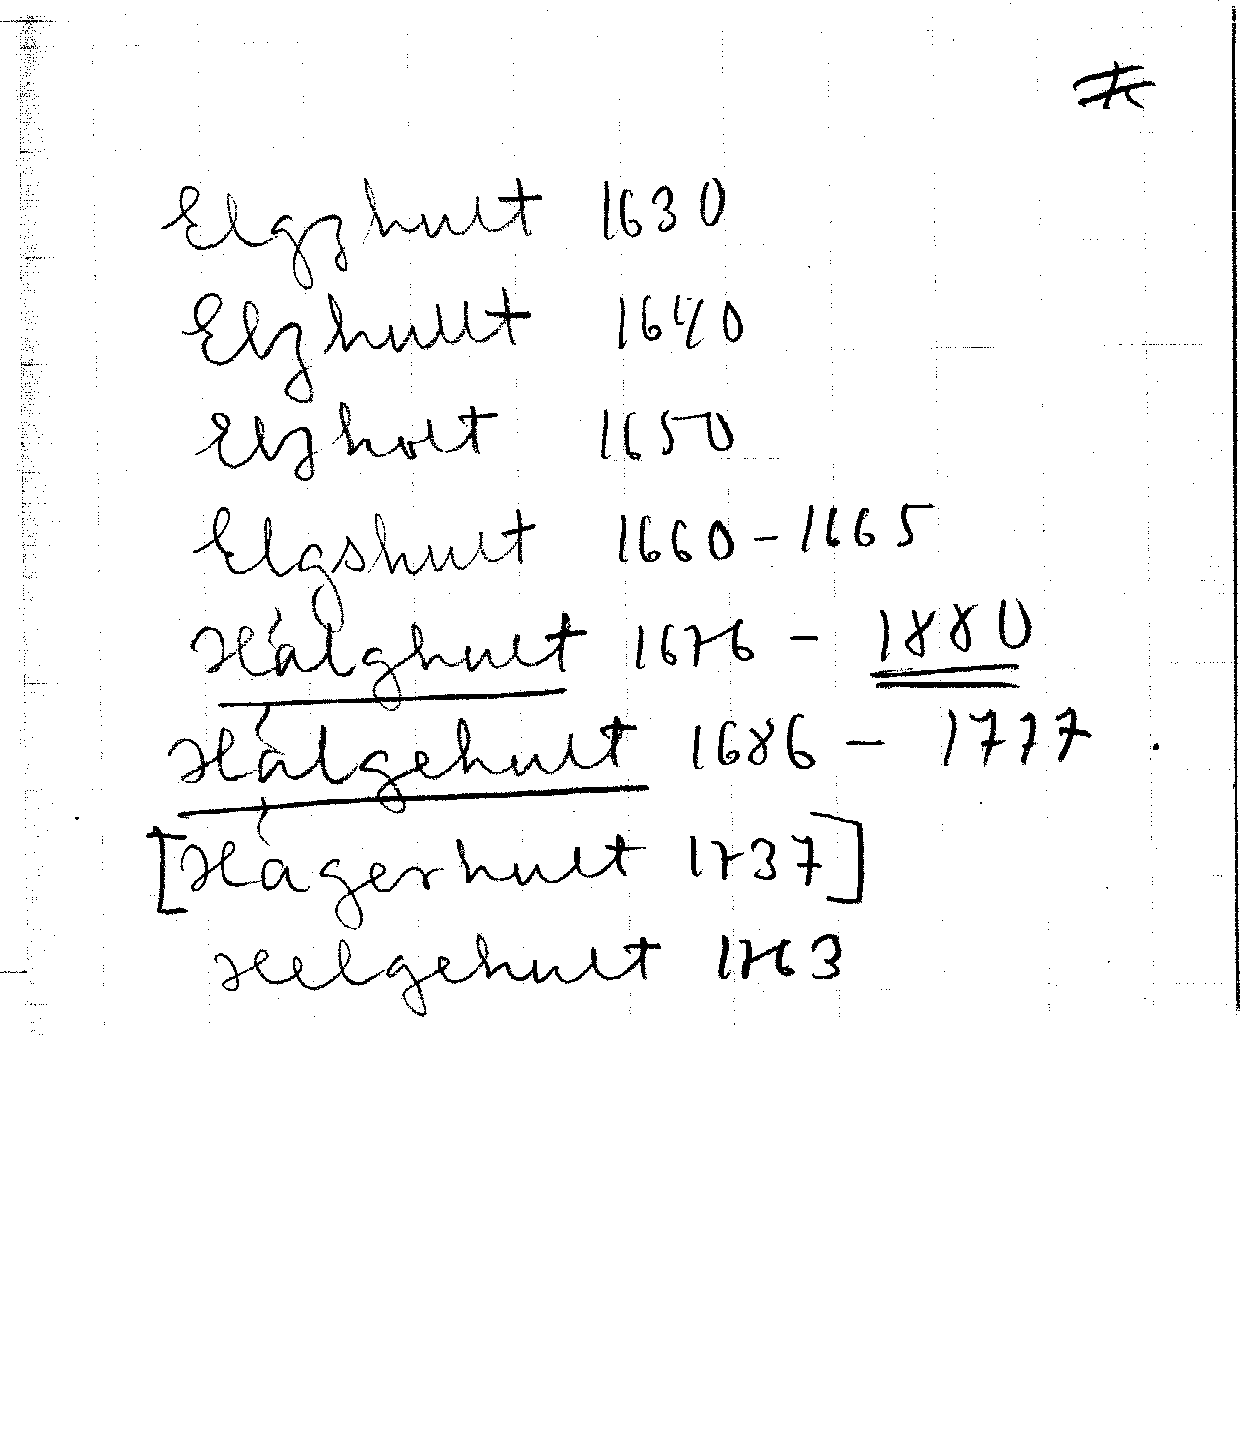 Elgzhult 1630
Elzhullt 1640
Elzholt 1650
Elgshult 1660 - 1665
Hälghult 1676 - 1880
Hälgehult 1686 - 1777
[Hägerhult 1737]
Helgehult 1763